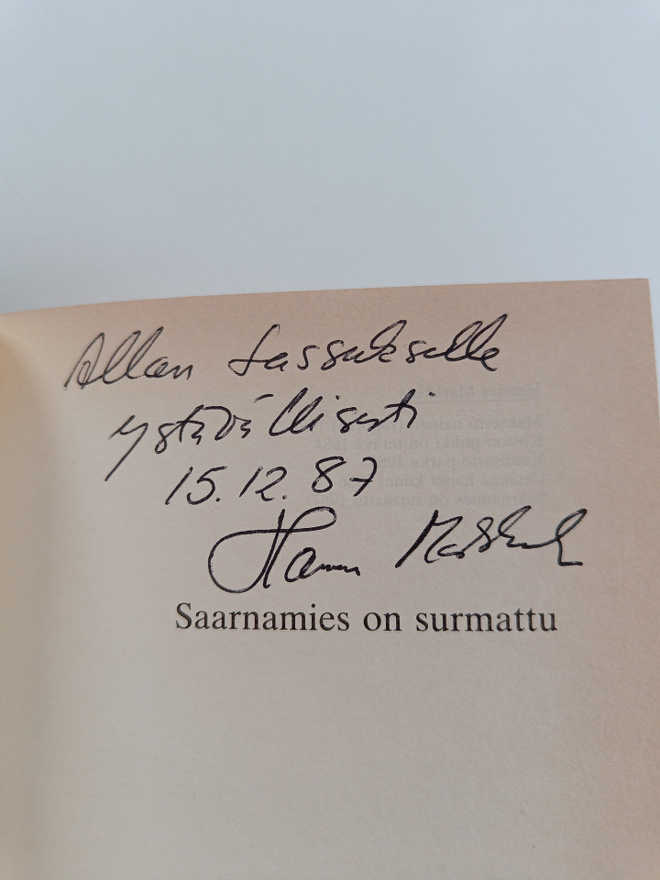 Allan Lassukselle
ystävällisesti
15.12.87
Hannu
Saarnamies on surmattu